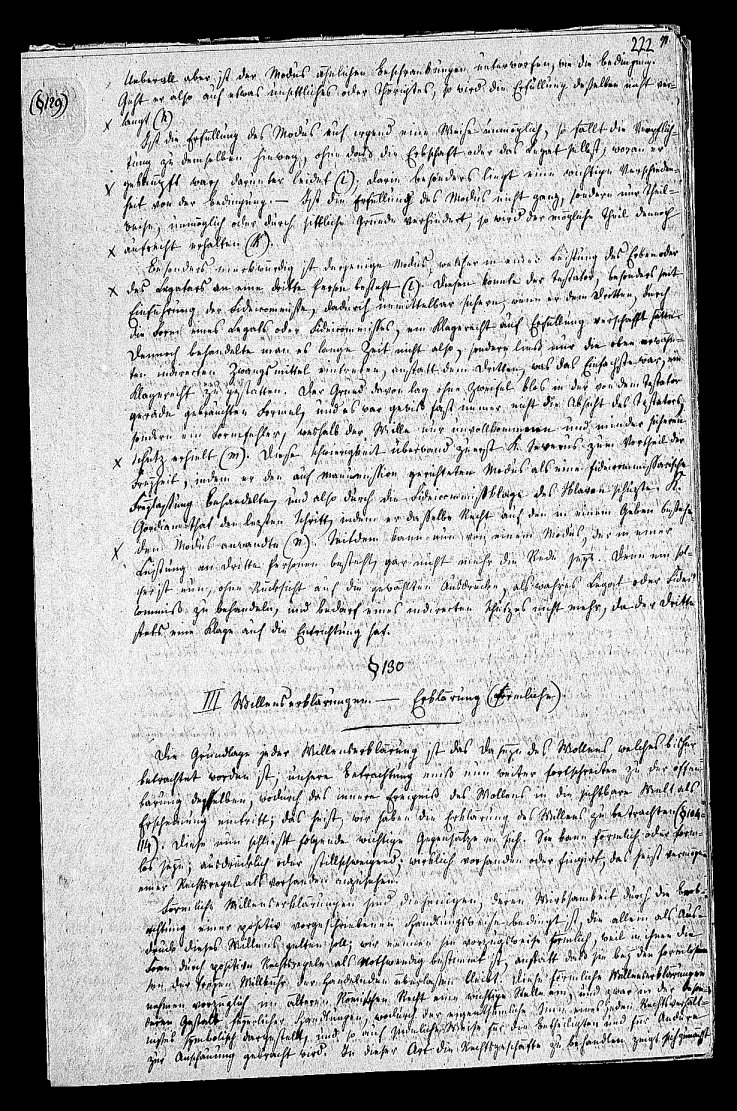 222
(§129)
Ueberall aber ist der Modus ähnlichen Beschränkungen unterworfen, wie die Bedingung.
Geht er also auf etwas unsittliches oder thörigtes, so wird die Erfüllung desselben nicht ver-
x langt (h)
Ist die Erfüllung des Modus auf irgend eine Weise unmöglich, so fällt die Verpflich-
tung zu demselben hinweg, ohne daß die Erbschaft oder das Legat selbst, woran er
x geknüpft war, darunter leidet (i), darin besonders liegt eine wichtige Verschieden-
heit von der Bedingung. — Ist die Erfüllung des Modus nicht ganz, sondern nur theil-
weise, unmöglich oder durch sittliche Gründe verhindert, so wird der mögliche Theil dennoch
x aufrecht erhalten (k).
Besonders merkwürdig ist derjenige Modus, welcher in einer Leistung des Erben oder
x des Legatars an eine dritte Person besteht (l). Diesen konnte der Testator, besonders seit
Einführung der Fideicommisse, dadurch unmittelbar sichern, wenn er dem Dritten, durch
die Form eines Legats oder Fideicommisses, ein Klagerecht auf Erfüllung verschafft hätte.
Dennoch behandelte man es lange Zeit nicht also, sondern ließ nur die oben erwähn-
ten indirecten Zwangsmittel eintreten, anstatt dem Dritten, was das Einfachste war, ein
Klagerecht zu gestatten. Der Grund davon lag ohne Zweifel blos in der von dem Testator
gerade gebrauchten Formel, und es war gewiß fast immer nicht die Absicht des Testators,
sondern ein Formfehler, weshalb der Wille nur unvollkommenen und minder sicheren
x Schutz erhielt (m). Diese Schwierigkeit überwand zuerst K. Severus zum Vortheil der
Freyheit, indem er den auf Manumission gerichteten Modus als eine fideicommissarische
Freylassung behandelte, und also durch die Fideicommißklage des Sklaven schützte. K.
Gordianus that den letzten Schritt, indem er dasselbe Recht auf den in einem Geben bestehen
x den Modus anwandte (n). Seitdem kann nun von einem Modus, der in einer
Leistung an dritte Personen besteht, gar nicht mehr die Rede seyn. Denn ein sol-
cher ist nun, ohne Rücksicht auf die gewählten Ausdrücke, als wahres Legat oder Fidei
commiß zu behandeln, und bedarf eines indirecten Schutzes nicht mehr, da der Dritte
stets eine Klage auf die Entrichtung hat.
§ 130
III Willenserklärungen — Erklärung (förmliche)
Die Grundlage jeder Willenserklärung ist das Daseyn des Wollens welches bisher
betrachtet worden ist; unsere Betrachtung muß nun weiter fortschreiten zu der Offen-
barung desselben, wodurch das innere Ereigniß des Wollens in die sichtbare Welt als
Erscheinung eintritt; das heißt, wir haben die Erklärung des Willens zu betrachten (§ 104.
114). Diese nun schließt folgende wichtige Gegensätze in sich. Sie kann förmlich oder form-
los seyn; ausdrücklich oder stillschweigend; wirklich vorhanden oder fingirt, das heißt vermöge
einer Rechtsregel als vorhanden anzusehen.
Förmliche Willenserklärungen sind diejenigen, deren Wirksamkeit durch die Beob-
achtung einer positiv vorgeschriebenen Handlungsweise bedingt ist, die allein als Aus-
druck dieses Willens gelten soll; wir nennen sie vorzugsweise förmlich, weil in ihnen die
Form durch positive Rechtsregeln als nothwendig bestimmt ist, anstatt daß sie bey den formlo-
sen der freyen Willkühr der Handelnden überlassen bleibt. Diese förmliche Willenserklärungen
nehmen vorzüglich im älteren Römischen Recht eine wichtige Stelle ein, und zwar in der beson-
deren Gestalt feyerlicher Handlungen, wodurch der eigenthümliche Sinn eines jeden Rechtsverhält-
nisses symbolisch dargestellt, und so auf sinnliche Weise für die Betheiligten und für Andere
zur Anschauung gebracht wird. In dieser Art die Rechtsgeschäfte zu behandeln zeigt sich